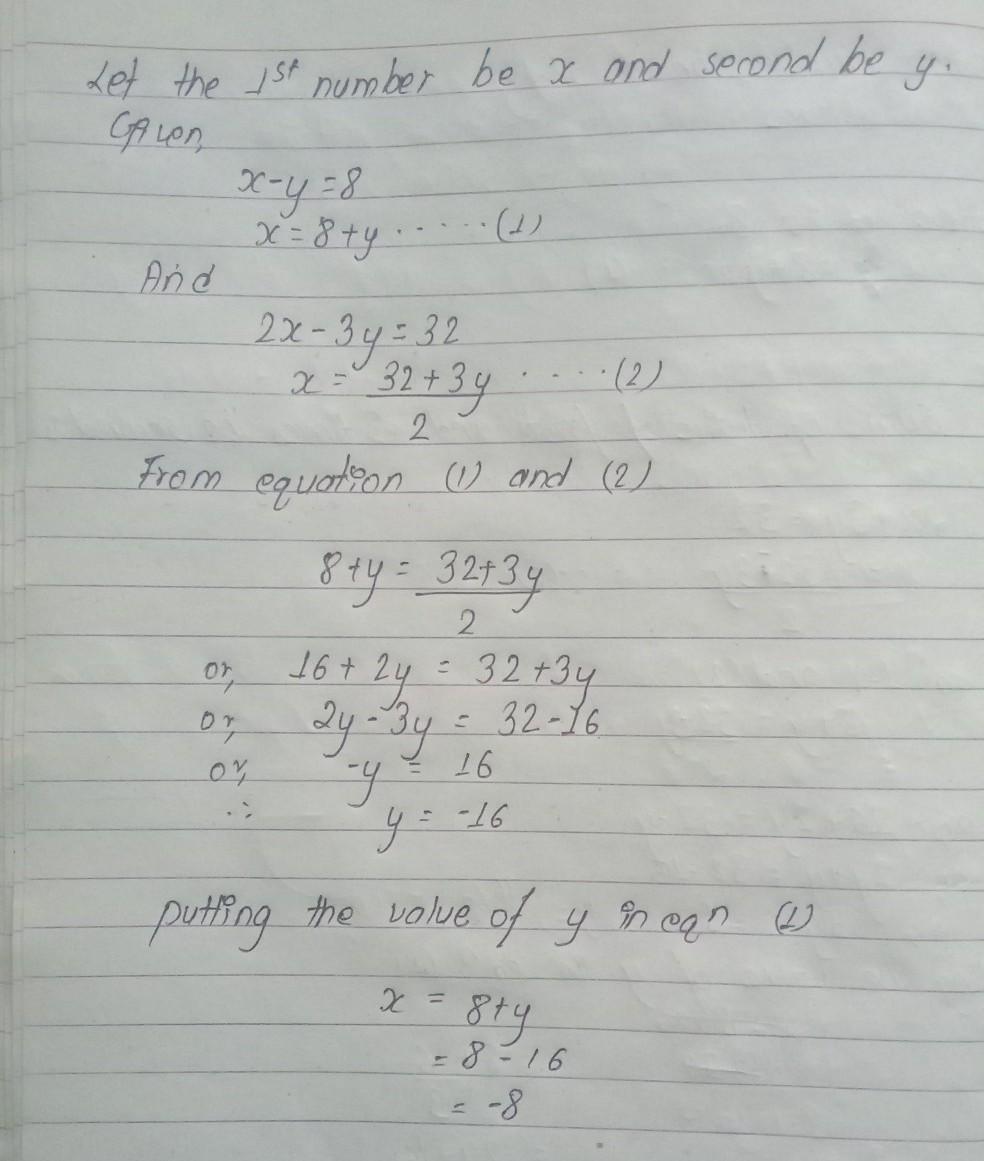 Let the 1st number be x and second be y.
Given,
x-y=8
x=8+y ..... (1)
And
2x-3y=32
x = 32+3y .... (2)
2
From equation (1) and (2)
8+y = 32+3y
2
or, 16+2y = 32+3y
or, 2y-3y = 32-16
or, -y = 16
∴ y = -16
putting the value of y in eqn (1)
x = 8+y
= 8-16
= -8